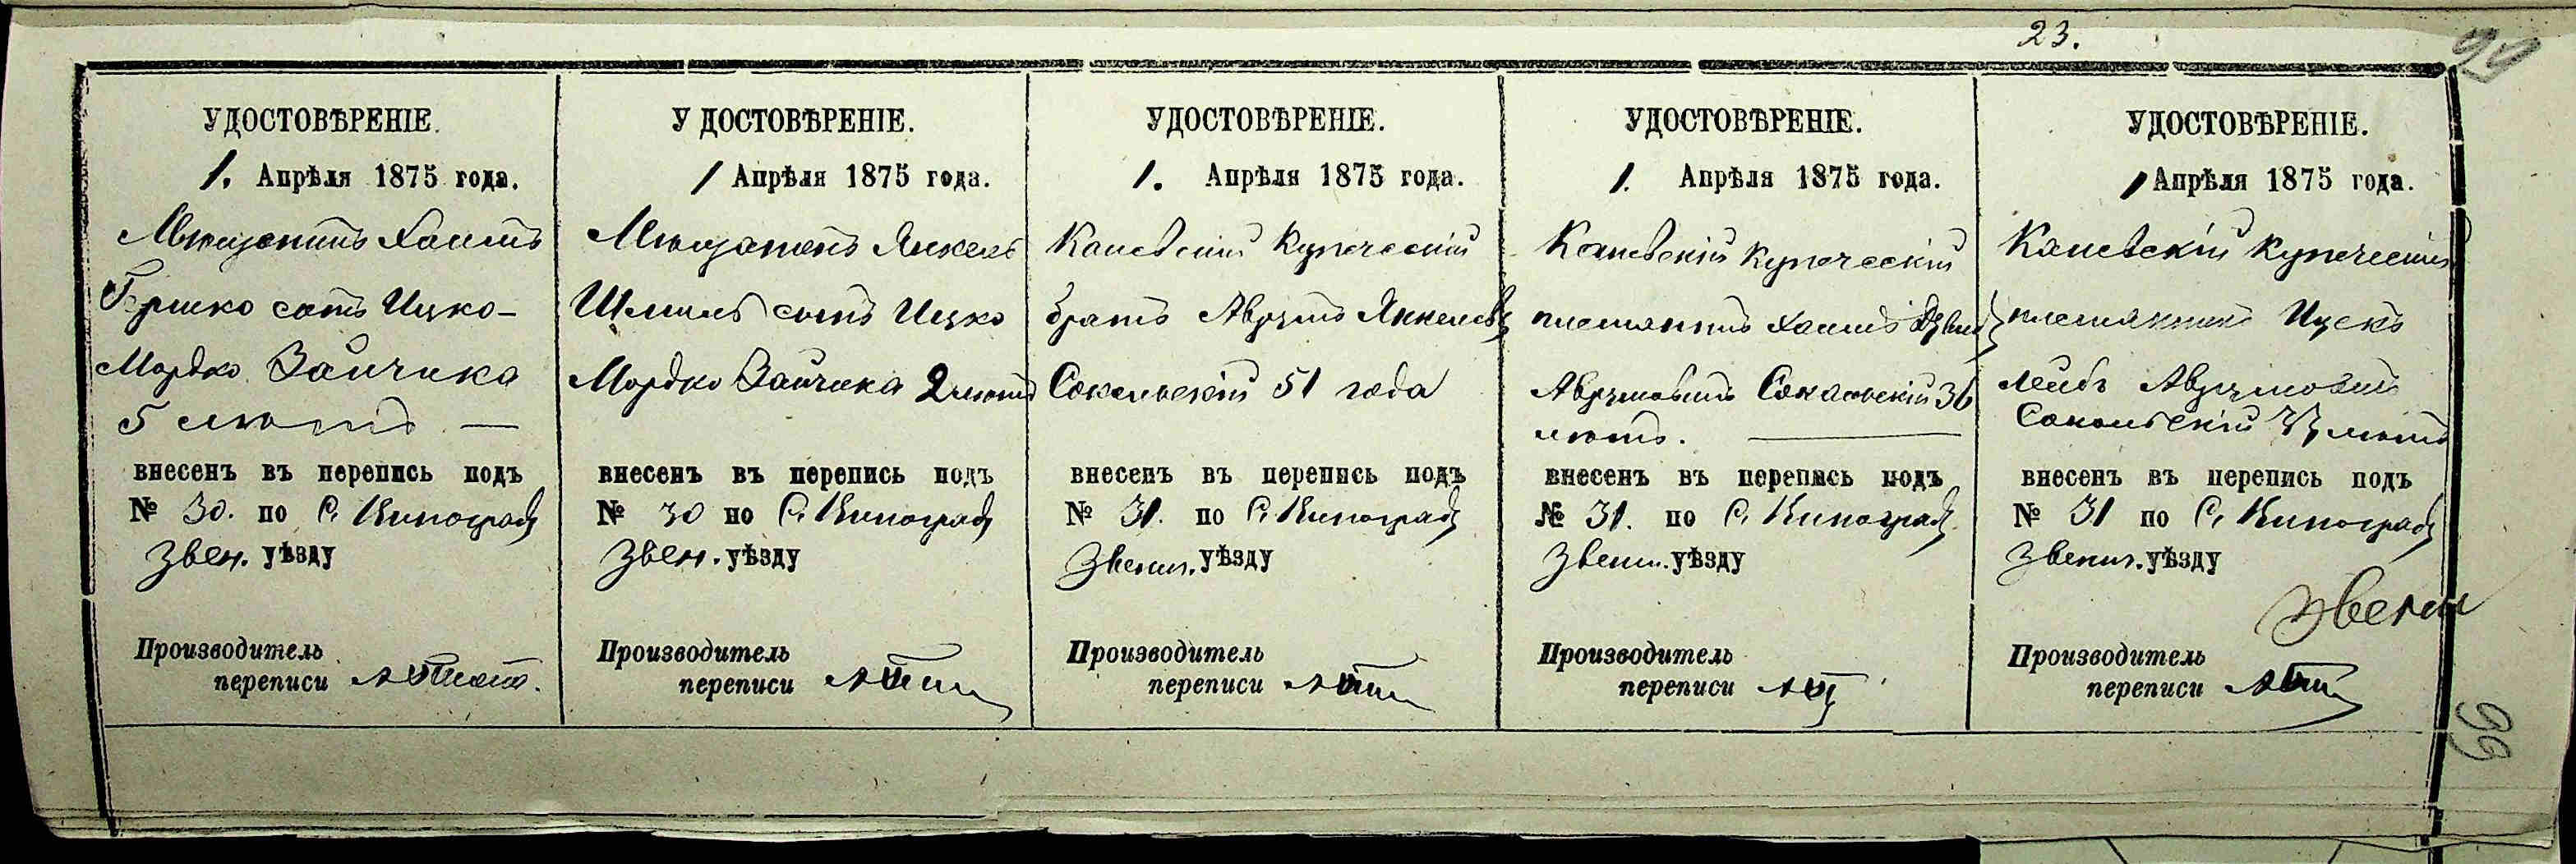 23.
УДОСТОВѢРЕНІЕ.
1. Апрѣля 1875 года.
Мѣщанинъ Хаимъ
Гершко сынъ Ицко-
Мордко Зайчика
5 лѣтъ —
внесенъ въ перепись подъ
№ 30. по С. Виноградѣ
Звен. уѣзду
Производитель
переписи
УДОСТОВѢРЕНІЕ.
1 Апрѣля 1875 года.
Мѣщанинъ Янкель
Шмиль сынъ Ицко
Мордко Зайчика 2 лѣтъ
внесенъ въ перепись подъ
№ 30 по С. Виноградѣ
Звен. уѣзду
Производитель
переписи
УДОСТОВѢРЕНІЕ.
1. Апрѣля 1875 года.
Каневскій купеческій
братъ Аврумъ Янкелевъ
Сокольскій 51 года
внесенъ въ перепись подъ
№ 31. по С. Виноградѣ
Звениг. уѣзду
Производитель
переписи
УДОСТОВѢРЕНІЕ.
1. Апрѣля 1875 года.
Каневскій купеческій
племянникъ Хаимъ
Аврумовичъ Сокольскій 36
лѣтъ. —
внесенъ въ перепись подъ
№ 31. по С. Виноградѣ.
Звениг. уѣзду
Производитель
переписи
УДОСТОВѢРЕНІЕ.
1 Апрѣля 1875 года.
Каневскій купеческій
племянникъ Ицекъ
Лейбъ Аврумовичъ
Сокольскій лѣтъ
внесенъ въ перепись подъ
№ 31 по С. Виноградѣ
Звениг. уѣзду
Звениг
Производитель
переписи
99